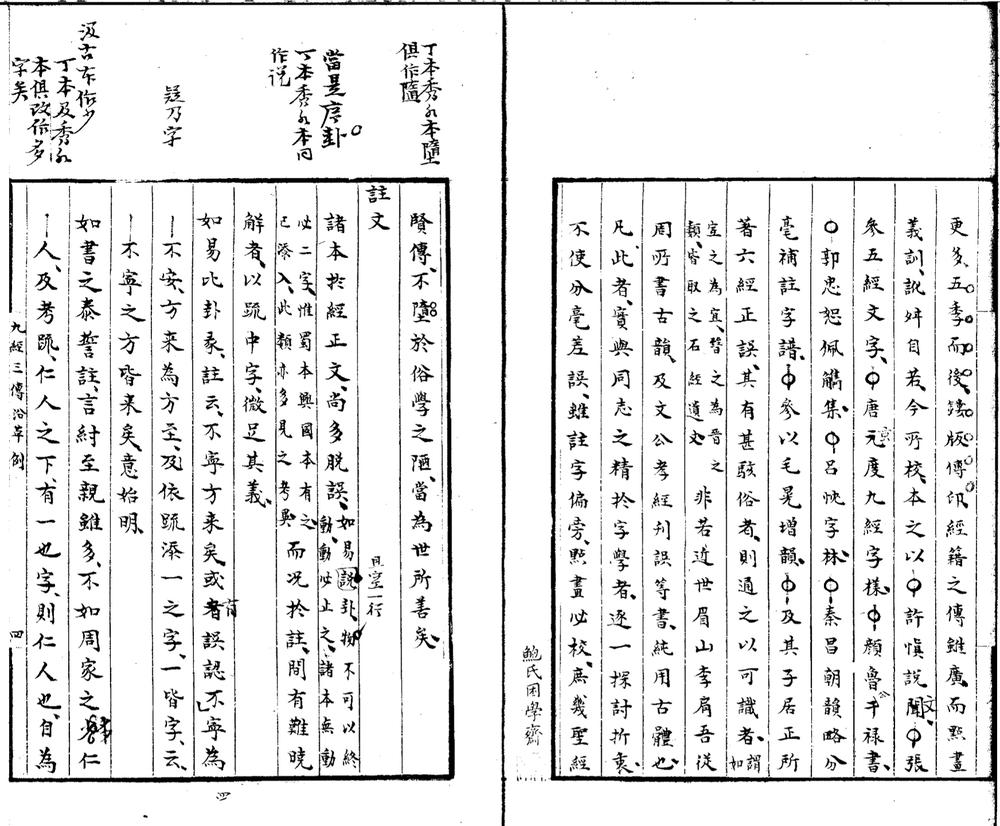 更多五季而後鏤版傳印經籍之傳雖廣而點畫
義訓訛舛自若今所校本之以許慎說文聞張
參五經文字唐元度九經字樣顏魯公干祿書
郭忠恕佩觿集呂忱字林秦昌朝韻略分
毫補註字譜參以毛晃增韻及其子居正所
著六經正誤其有甚駭俗者則通之以可識者謂如
宜之為宐晉之為晋之
類皆取之石經遺文非若近世眉山李肩吾從
周所書古韻及文公孝經刊誤等書純用古體也
凡此者實與同志之精於字學者逐一探討折衷
不使分毫差誤雖註字偏旁點畫必校庶幾聖經
鮑氏困學齋
丁本秀水本墮
俱作隨
賢傳不墮於俗學之陋當為世所善矣
且空一行
註文
當是序卦
丁本秀水本同
作說
諸本於經正文尚多脫誤如易說卦物不可以終
動動必止之諸本無動
必二字惟蜀本興國本有之
已添入此類亦多見之考異而况於註間有難曉
解者以疏中字微足其義
疑乃字
如易比卦彖註云不寧方来矣或者誤認不寧為
一不安方来為方至及依疏添一之字一皆字云
一不寧之方皆来矣意始明
汲古本作少
丁本及秀水
本俱改作多
字矣
如書之泰誓註言紂至親雖多不如周家之少仁
一人及考疏仁人之下有一也字則仁人也自為
九經三傳沿革例
四
四